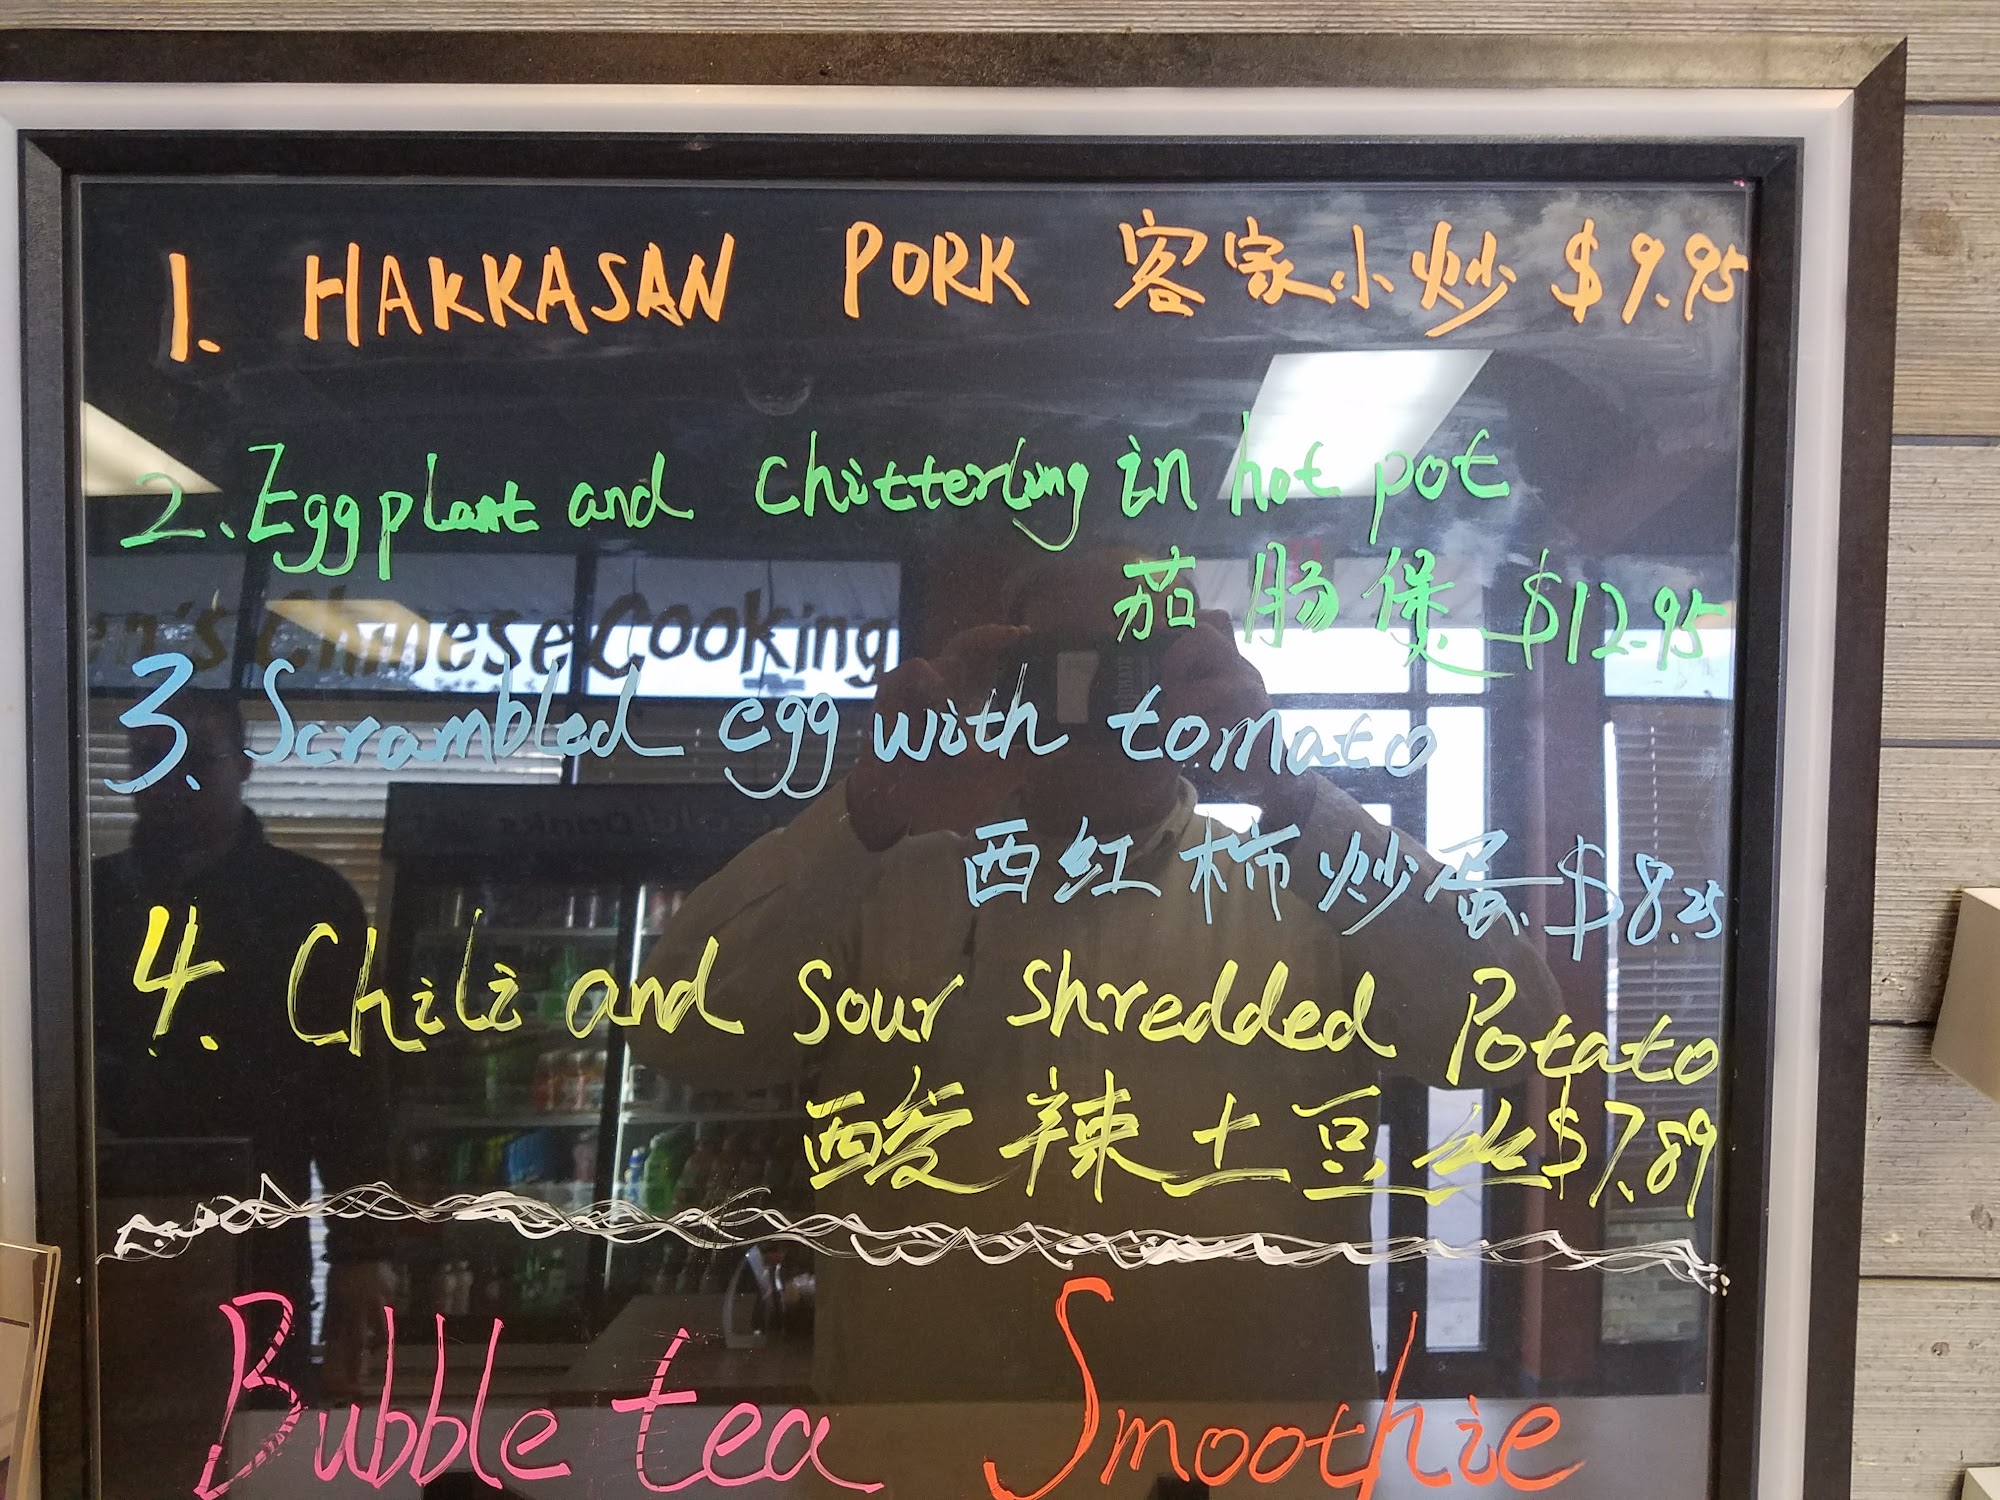 1. HAKKASAN PORK 客家小炒 $9.95
2. Eggplant and chitterling in hot pot
茄肠煲 $12.95
Chinese Cooking
3. Scrambled egg with tomato
西红柿炒蛋 $8.25
4. Chili and sour shredded Potato
酸辣土豆丝 $7.89
Bubble tea Smoothie